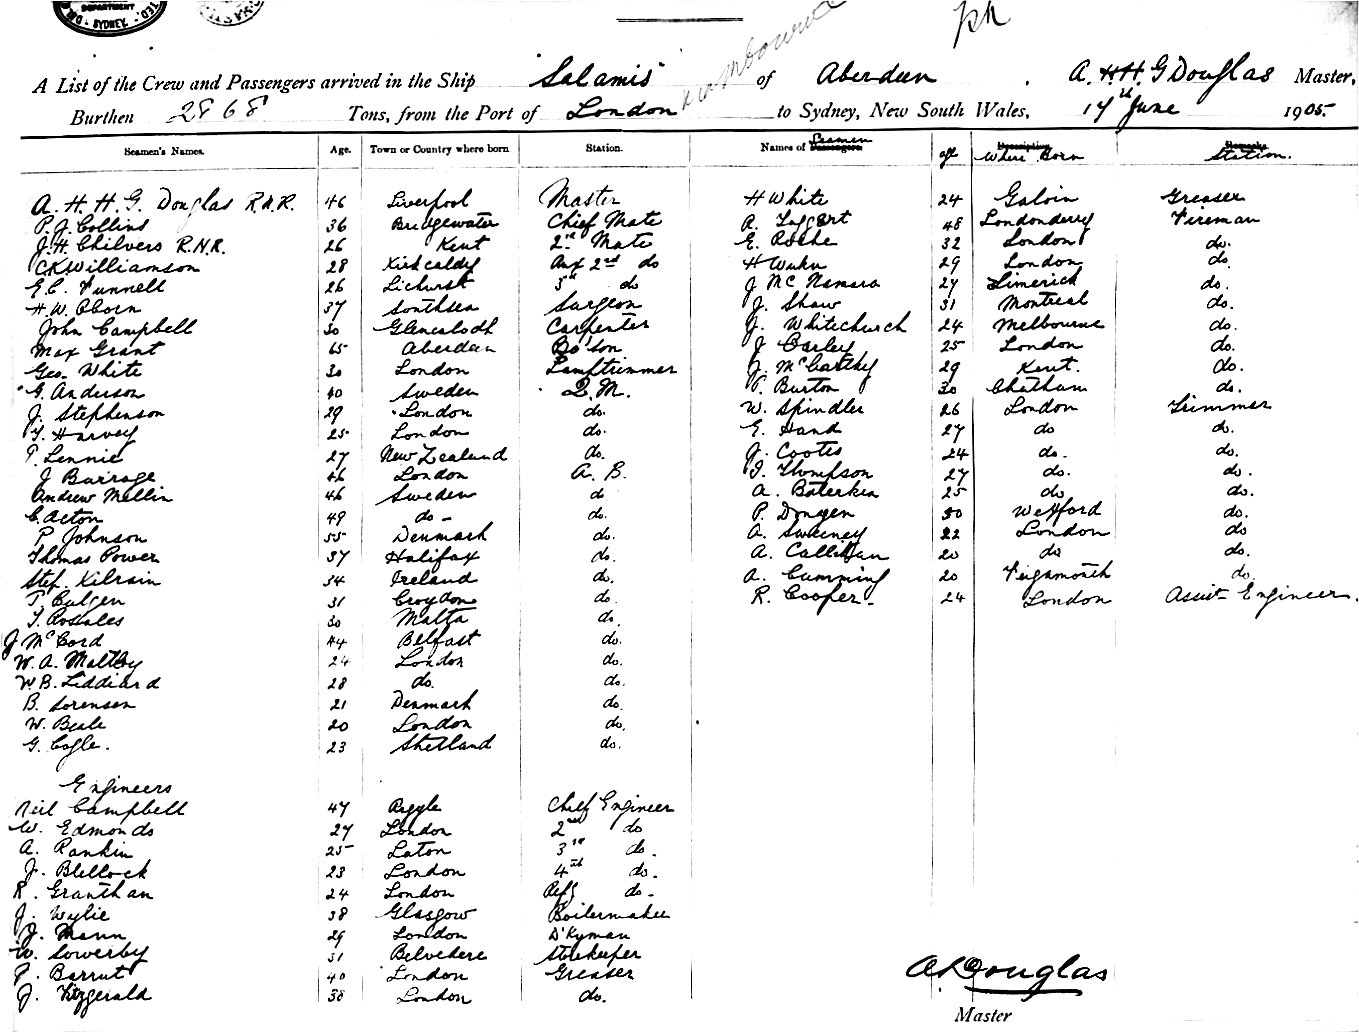 DEPARTMENT
SYDNEY.
A List of the Crew and Passengers arrived in the Ship "Salamis" of Aberdeen. A. H.H. G Douglas Master,
Burthen 2868 Tons, from the Port of London to Sydney, New South Wales, 17th June 1905.
Seamen's Names. Age. Town or Country where born Station.
A. H. H. G. Douglas R.N.R. 46 Liverpool Master
P. J. Collins 36 Bridgewater Chief Mate
J. H. Chilvers R.N.R. 26 Kent 2nd Mate
CK Williamson 28 Kirkcaldy Aux 2nd do
E. C. Funnell 26 3rd do
H. W. Oborn 37 Southsea Surgeon
John Campbell 30 Carpenter
Max Grant 65 Aberdeen Bo'son
Geo. White 30 London Lamptrimmer
G. Anderson 40 Sweden Q. M.
J. Stephenson 29 London do.
T. Harvey 25 London do.
P. Lennie 27 New Zealand do.
J Burrage 46 London A. B.
Andrew Mellin 46 Sweden do
C. Acton 49 do - do.
P. Johnson 55 Denmark do.
Thomas Power 37 Halifax do.
Stef. Kilrain 34 Ireland do.
31 Croydon do.
T. Rosales 30 Malta do.
J McCord 44 Belfast do.
W. A. Maltby 24 London do.
W. B. Liddiard 28 do. do.
B. Sorensen 21 Denmark do.
W. Beale 20 London do.
G. Cogle. 23 Shetland do.
Engineers
Neil Campbell 47 Argyle Chief Engineer
W. Edmonds 27 London 2nd do
A. Rankin 25 Luton 3rd do.
J. Blellock 23 London 4th do.
R. Grantham 24 London Refg do -
J. Wylie 38 Glasgow Boilermaker
J. Mann 29 London D'kyman
W. Sowerby 31 Belvedere Storekeeper
P. Barrut 40 London Greaser
J. Fitzgerald 38 London do.
Names of Passengers Seamen age Description Where Born Remarks Station.
H White 24 Greaser
A. Taggart 48 Londonderry Fireman
E. Roche 32 London do.
H 29 London do.
J McNamara 27 Limerick do.
J. Shaw 31 Montreal do.
J. Whitechurch 24 Melbourne do.
J Carley 25 London do.
J. McCarthy 29 Kent. do.
T. Burton 30 Chatham do.
W. Spindler 26 London Trimmer
E. Hand 27 do do.
J. Cootes 24 do. do.
I. Thompson 27 do. do.
A. Baterken 25 do do.
P. Dongen 30 Wexford do.
A. Sweeney 22 London do
A. Callihan 20 do do.
A. Cumming 20 Teignmouth do.
R. Cooper. 24 London Assist Engineer.
A Douglas
Master